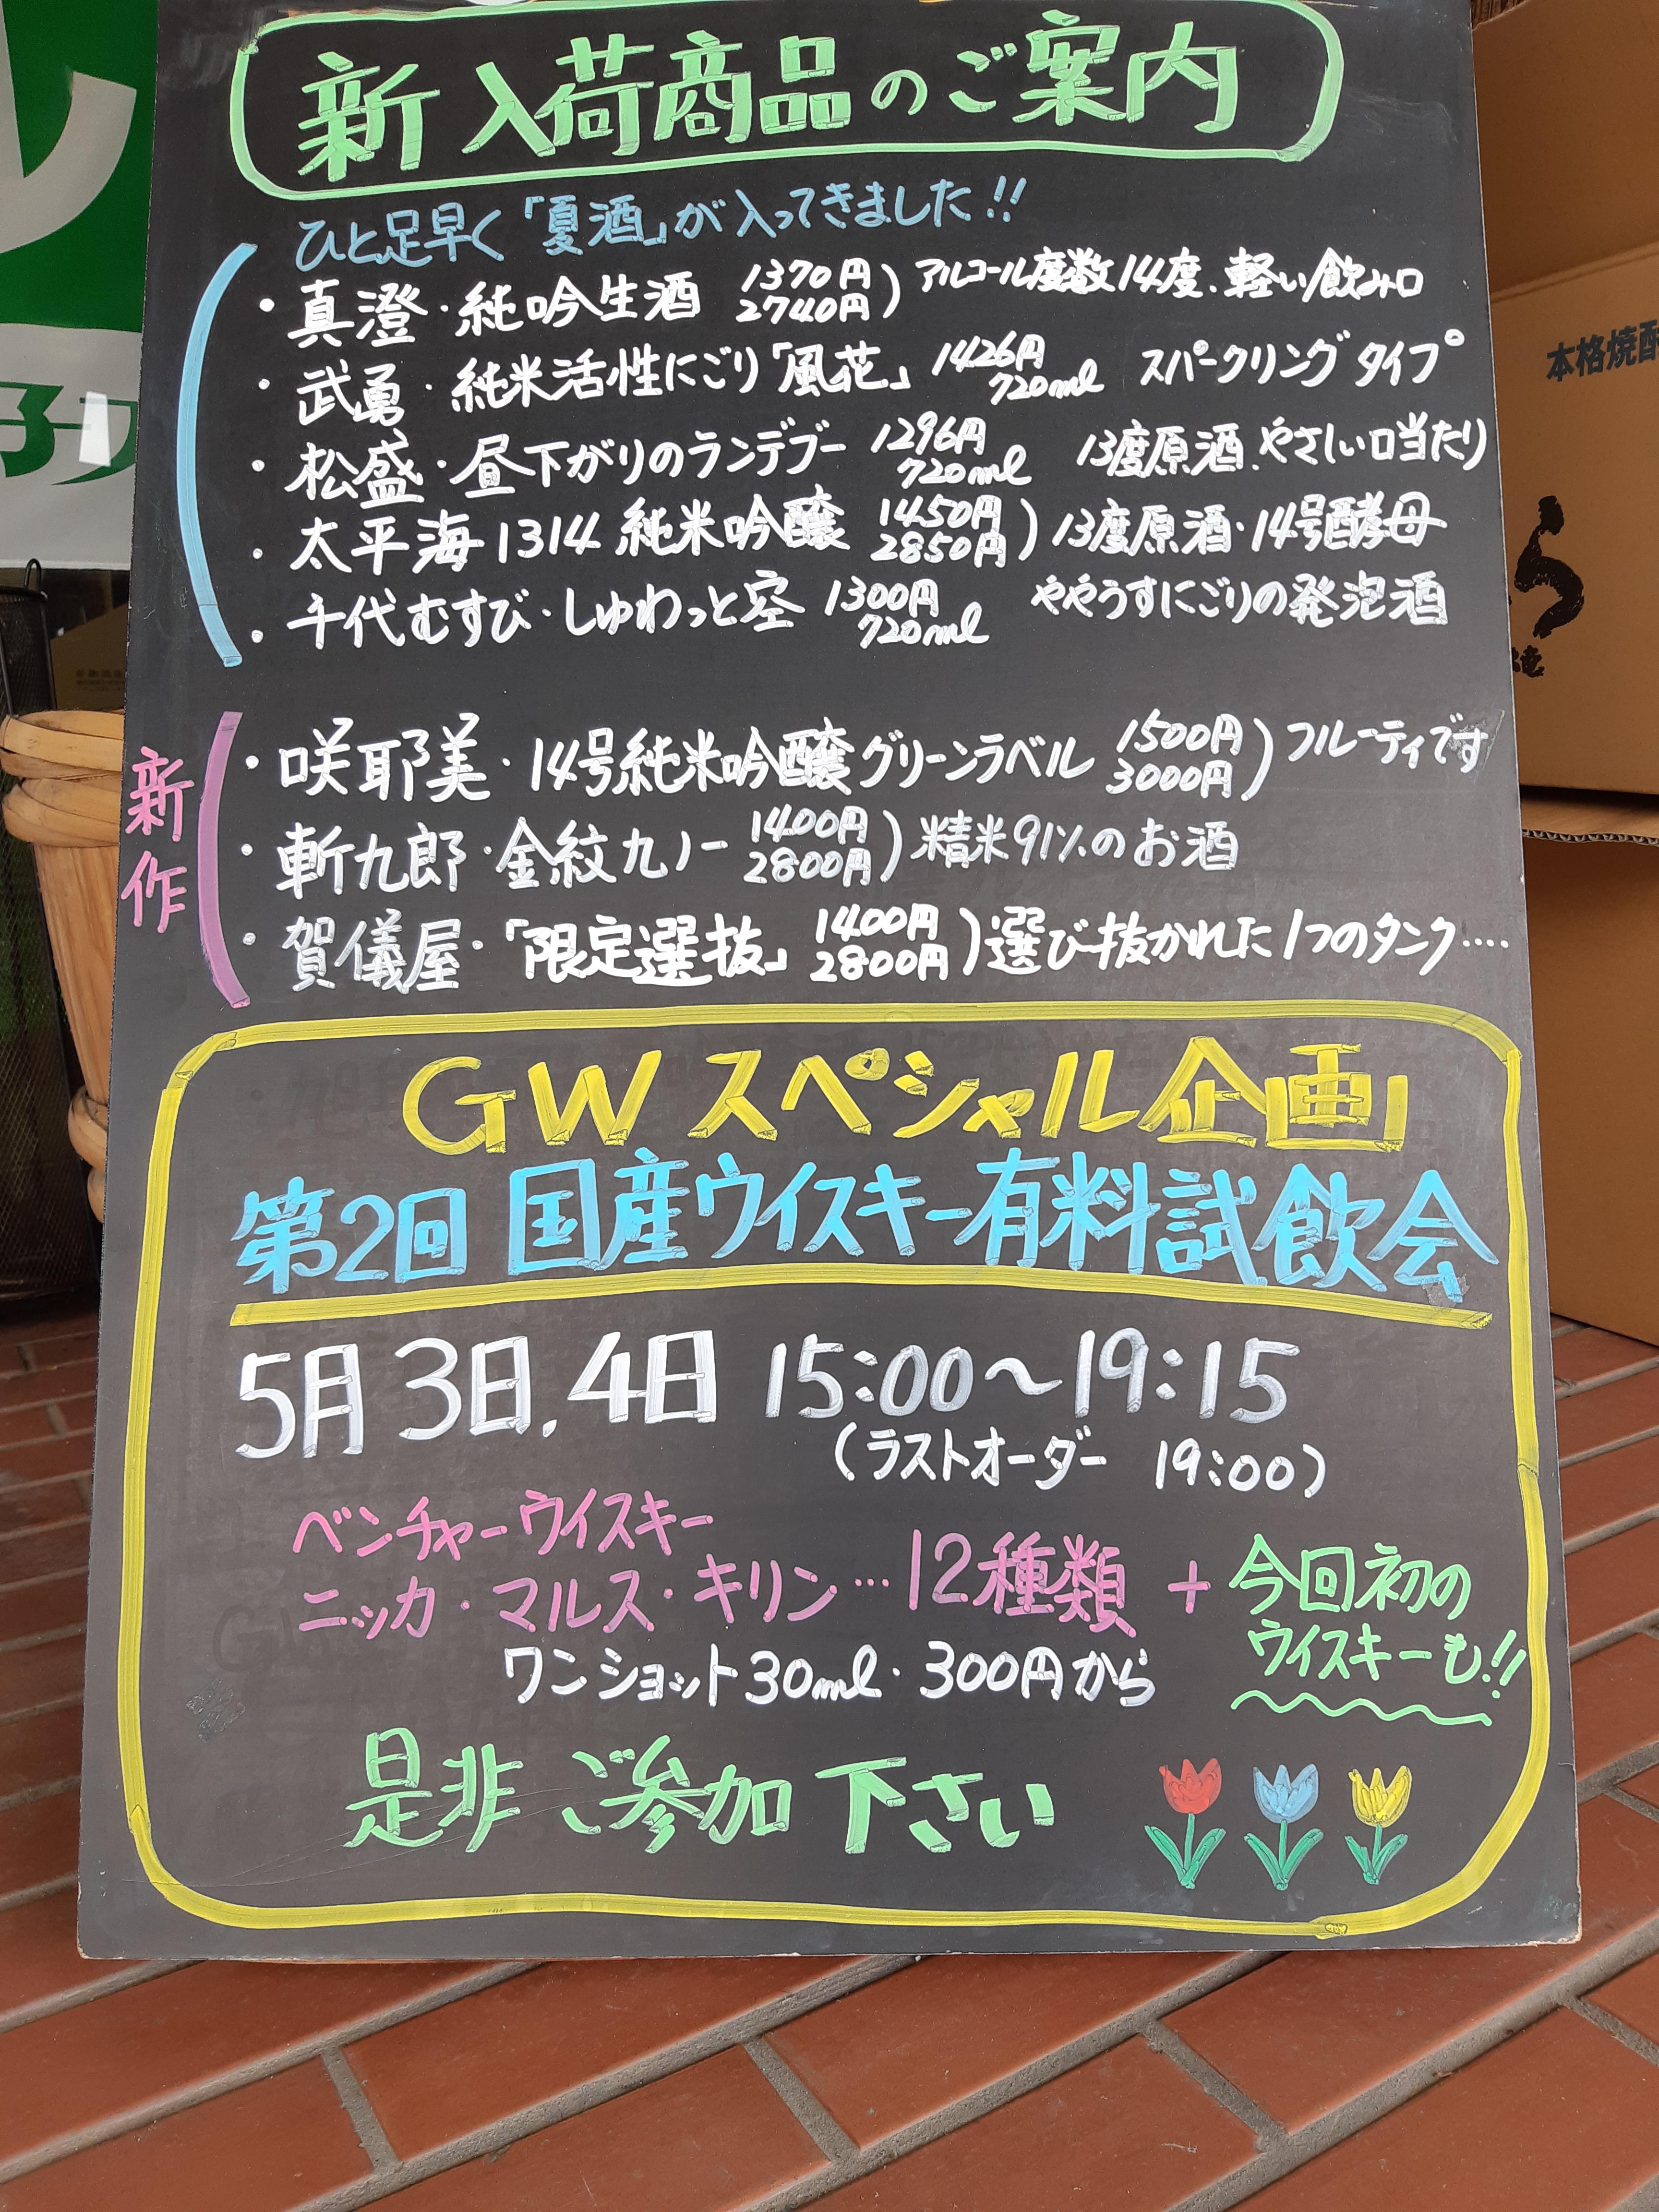 新入荷商品のご案内
ひと足早く「夏酒」が入ってきました!!
・真澄・純吟生酒 1370円 2740円) アルコール度数14度、軽い飲み口
・武勇・純米活性にごり「風花」 1426円 720ml スパークリングタイプ
・松盛・昼下がりのランデブー 1296円 720ml 13度原酒、やさしい口当たり
・太平海1314純米吟醸 1450円 2850円) 13度原酒・14号酵母
・千代むすび・しゅわっと空 1300円 720ml ややうすにごりの発泡酒
新作
・咲耶美・14号純米吟醸グリーンラベル 1500円 3000円) フルーティです
・斬九郎・金紋九ノ一 1400円 2800円) 精米91%のお酒
・賀儀屋・「限定選抜」 1400円 2800円) 選び抜かれた1つのタンク‥‥
GWスペシャル企画
第2回 国産ウイスキー有料試飲会
5月3日.4日 15:00〜19:15
(ラストオーダー 19:00)
ベンチャーウイスキー
ニッカ・マルス・キリン…12種類 + 今回初の
ウイスキーも!!
ワンショット30ml・300円から
是非ご参加下さい
本格焼酎